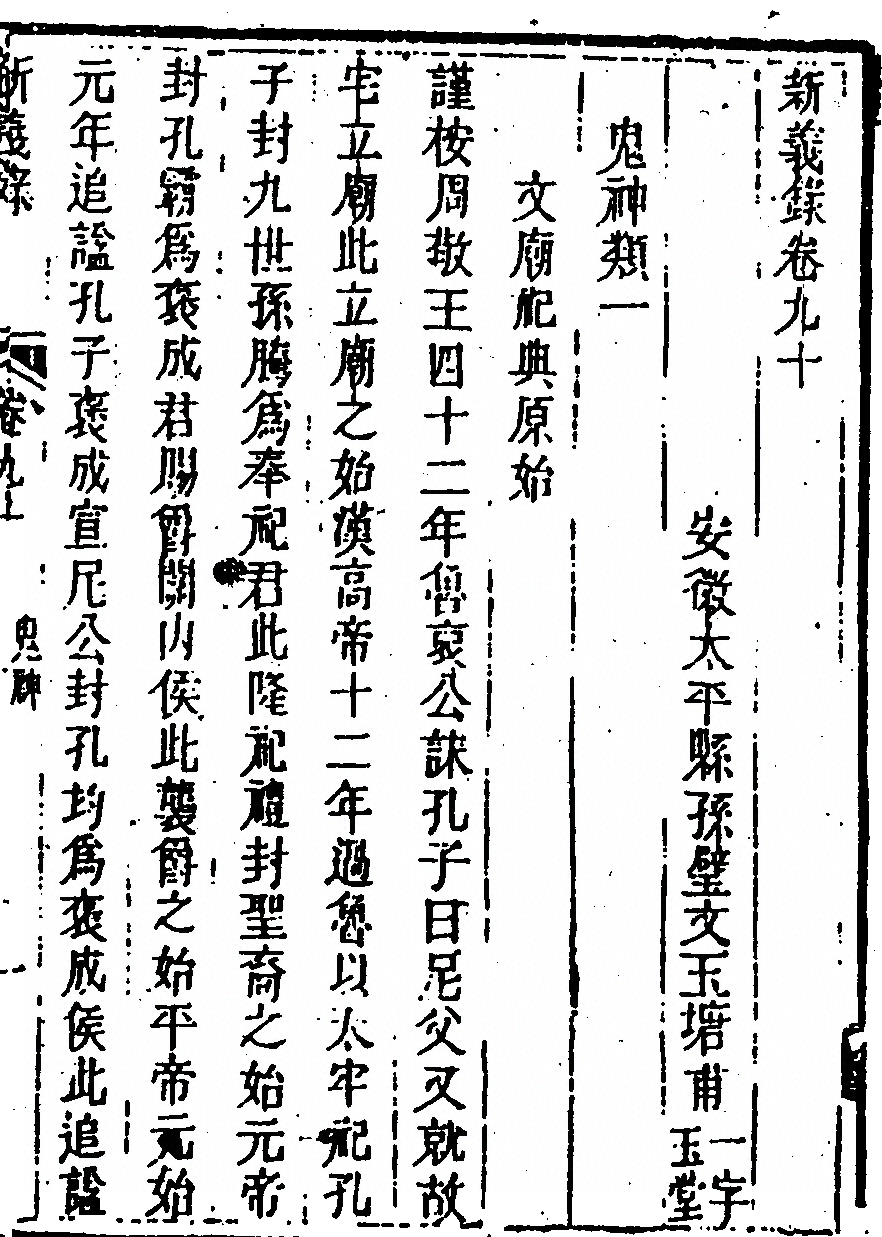 新義錄卷九十
安徽太平縣孫璧文玉塘甫一字玉堂
鬼神類一
文廟祀典原始
謹桉周敬王四十二年魯哀公誄孔子曰尼父又就故
宅立廟此立廟之始漢高帝十二年過魯以太牢祀孔
子封九世孫騰爲奉祀君此隆祀禮封聖裔之始元帝
封孔霸爲褒成君賜爵關內侯此襲爵之始平帝元始
元年追謚孔子褒成宣尼公封孔均爲褒成侯此追謚
新義錄 卷九十 鬼神